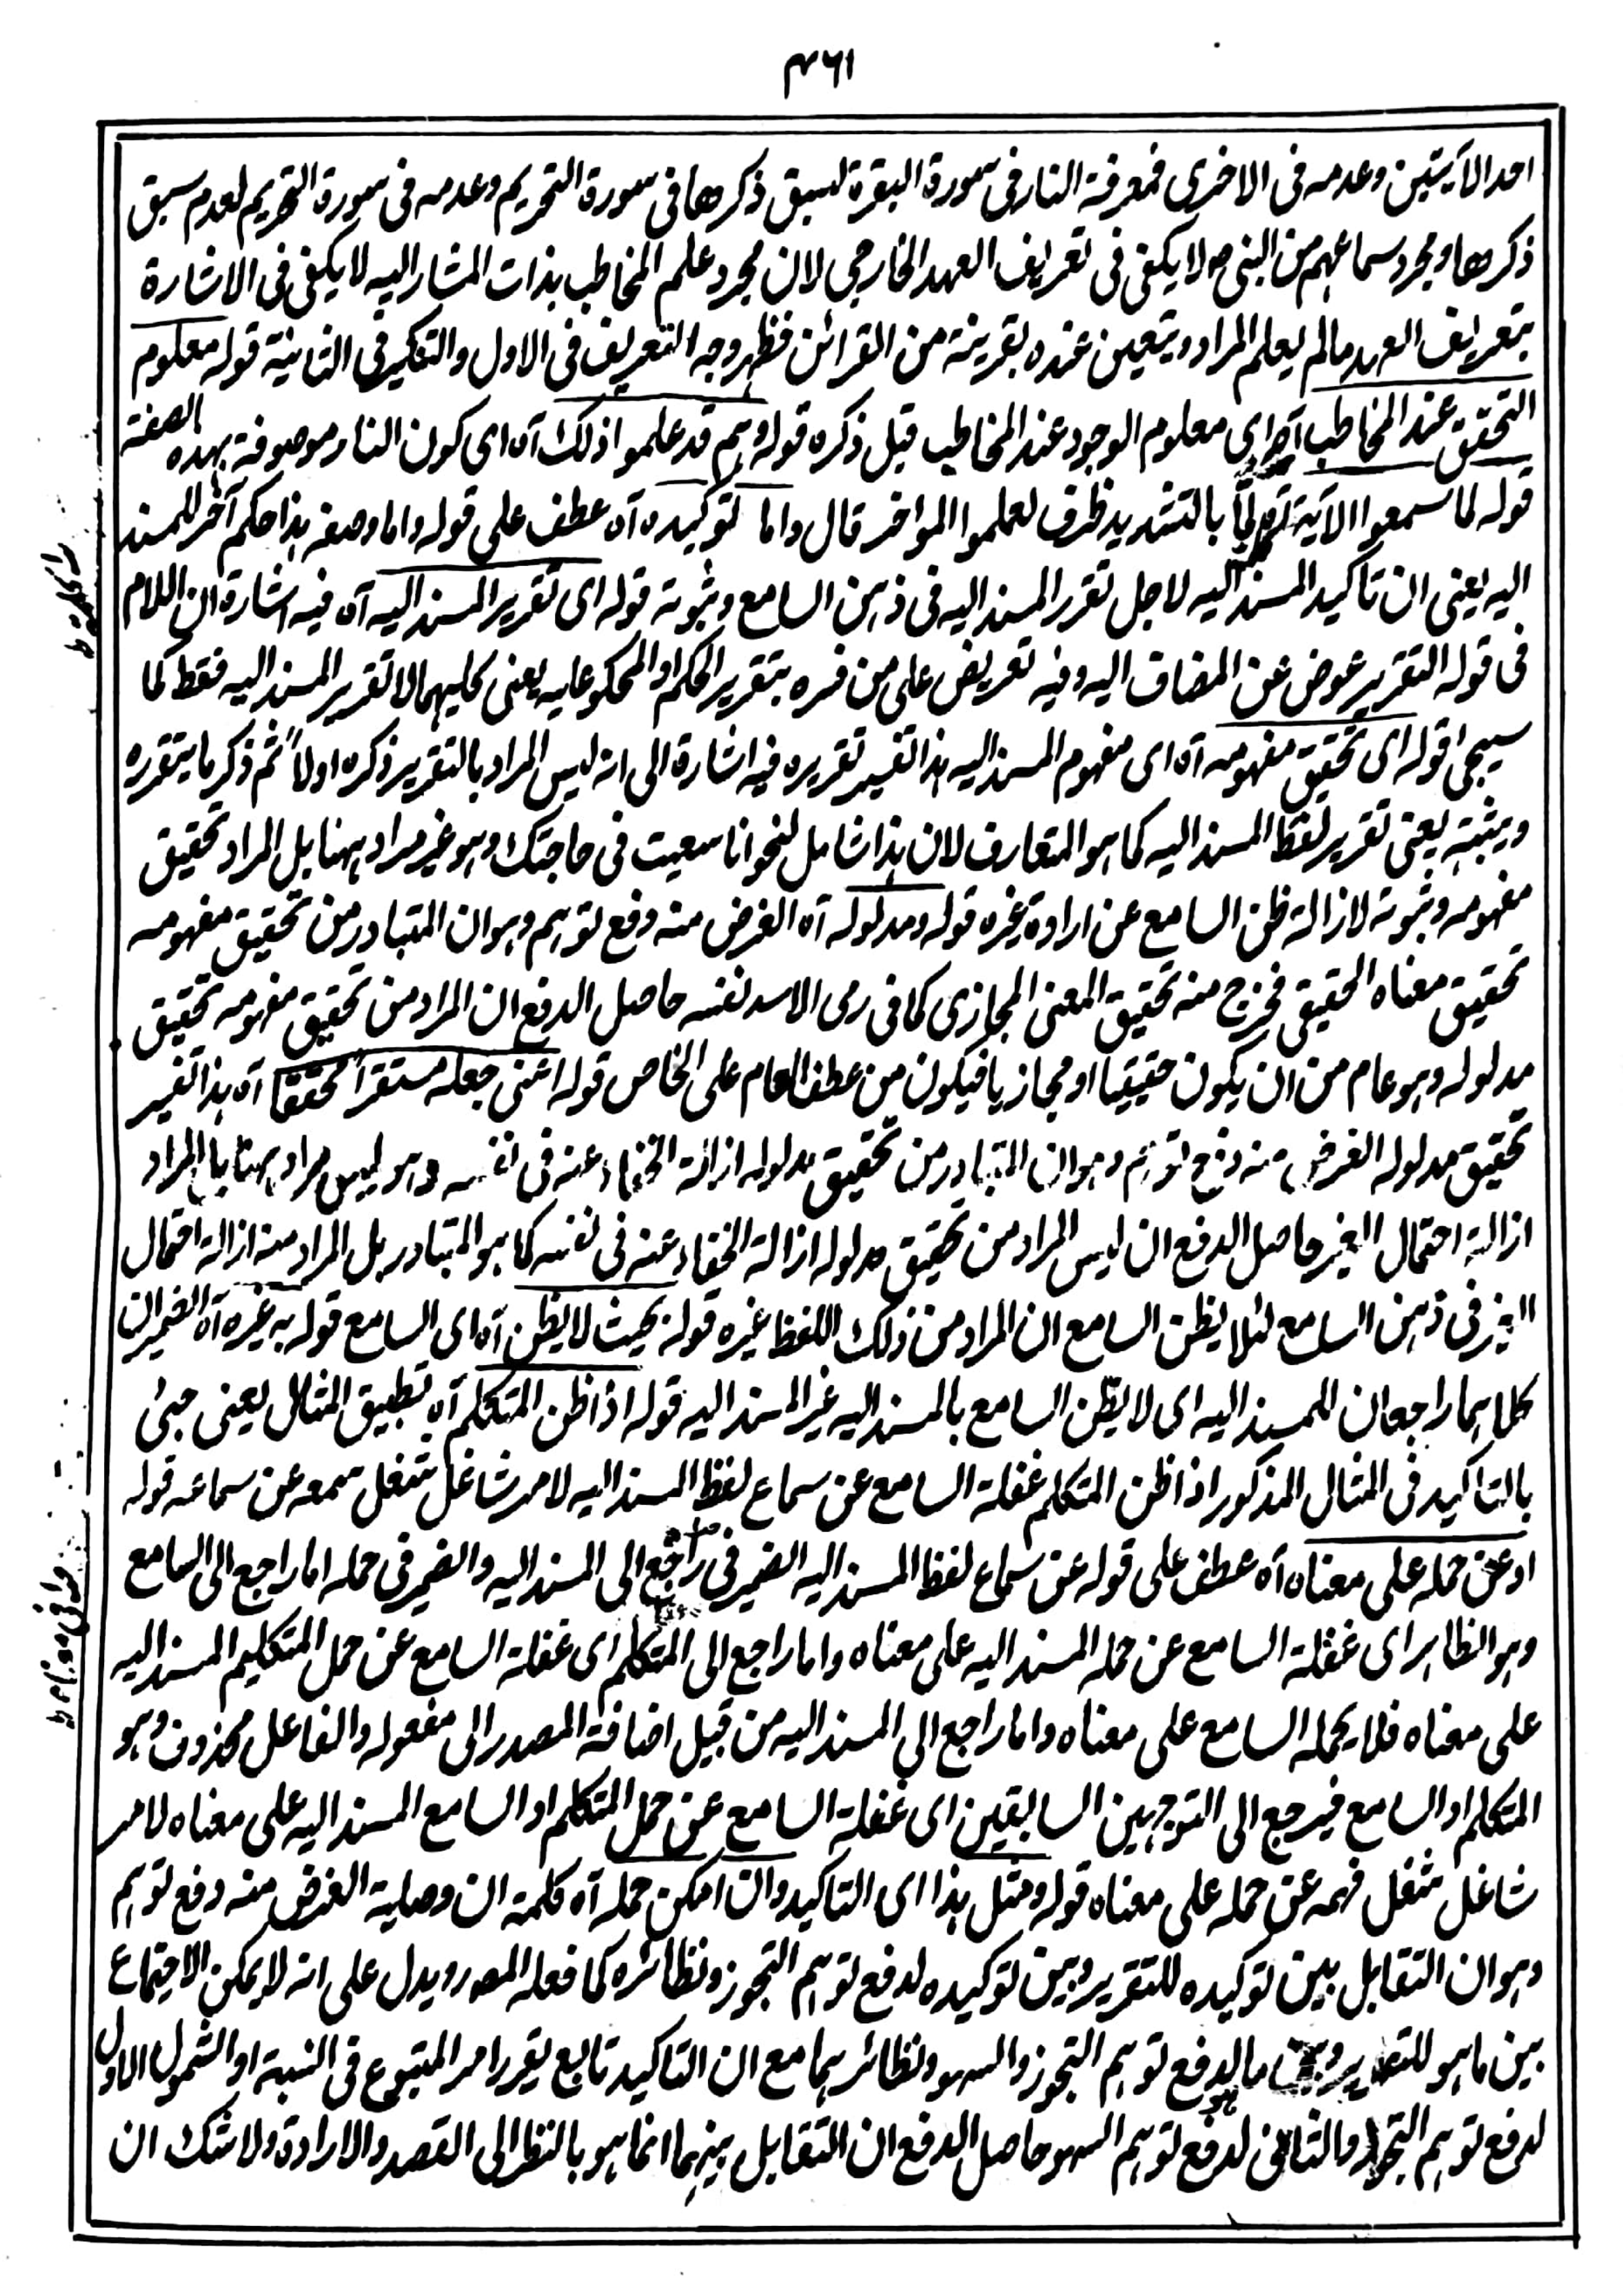 ٣٦١
احد الآيتين وعدمه فى الاخرى فمعرفة النار فى سورة البقرة لسبق ذكرها فى سورة التحريم وعدمه فى سورة التحريم لعدم سبق
ذكرها ومجرد سماعهم من النبى ص لا يكفى فى تعريف العهد الخارجي لان مجرد علم المخاطب بذات المشار اليه لا يكفى فى الاشارة
بتعريف العهد مالم يعلم المراد ويتعين عنده بقرينة من القرائن فظهر وجه التعريف فى الاول والتنكير فى الثانية قوله معلوم
التحقق عند المخاطب آه اى معلوم الوجود عند المخاطب قبل ذكره قوله وهم قد علموا ذلك آه اى كون النار موصوفة بهذه الصفة
قوله لما سمعوا الآية آه لمّا بالتشديد ظرف لعلموا المؤخر قال واما توكيده آه عطف على قوله واما وصفه هذا حكم آخر للمسند
اليه يعنى ان تاكيد المسند اليه لاجل تقرر المسند اليه فى ذهن السامع وثبوته قوله اى تقرير المسند اليه آه فيه اشارة ان اللام
فى قوله التقرير عوض عن المضاف اليه وفيه تعريض على من فسره بتقرير الحكم او المحكوم عليه يعنى كليهما لا تقرير المسند اليه فقط كما
سيجئ قوله اى تحقيق مفهومه آه اى مفهوم المسند اليه هذا تفسير تقريره فيه اشارة الى انه ليس المراد بالتقرير ذكره اولاً ثم ذكر ما يتقرره
ويثبته يعنى تقرير لفظ المسند اليه كما هو المتعارف لان هذا شامل لنحو انا سعيت فى حاجتك وهو غير مراد ههنا بل المراد تحقيق
مفهومه وثبوته لازالة ظن السامع عن ارادة غيره قوله ومدلوله آه الغرض منه دفع توهم وهو ان المتبادر من تحقيق مفهومه
تحقيق معناه الحقيقى فخرج منه تحقيق المعنى المجازى كما فى رمى الاسد نفسه حاصل الدفع ان المراد من تحقيق مفهومه تحقيق
مدلوله وهو عام من ان يكون حقيقيا او مجازيا فيكون من عطف العام على الخاص قوله اعنى جعله مستقرا محققا آه هذا تفسير
تحقيق مدلوله الغرض منه دفع توهم وهو ان المتبادر من تحقيق مدلوله ازالة الخفاء عنه فى نفسه وهو ليس مراد ههنا بل المراد
ازالة احتمال الغير حاصل الدفع ان ليس المراد من تحقيق مدلوله ازالة الخفاء عنه فى نفسه كما هو المتبادر بل المراد منه ازالة احتمال
الغير فى ذهن السامع لئلا يظن السامع ان المراد من ذلك اللفظ غيره قوله بحيث لا يظن آه اى السامع قوله به غيره آه الضميران
كلاهما راجعان للمسند اليه اى لا يظن السامع بالمسند اليه غير المسند اليه قوله اذا ظن المتكلم آه تطبيق المثال يعنى جئ
بالتاكيد فى المثال المذكور اذا ظن المتكلم غفلة السامع عن سماع لفظ المسند اليه لامر شاغل شغل سمعه عن سماعه قوله
او عن حمله على معناه آه عطف على قوله عن سماع لفظ المسند اليه الضمير فى راجع الى المسند اليه والضمير فى حمله اما راجع الى السامع
وهو الظاهر اى غفلة السامع عن حمله المسند اليه على معناه واما راجع الى المتكلم اى غفلة السامع عن حمل المتكليم المسند اليه
على معناه فلا يحمله السامع على معناه واما راجع الى المسند اليه من قبيل اضافة المصدر الى مفعوله والفاعل محذوف وهو
المتكلم او السامع فيرجع الى التوجهين السابقين اى غفلة السامع عن حمل المتكلم او السامع المسند اليه على معناه لامر
شاغل شغل فهمه عن حمله على معناه قوله ومثل هذا اى التاكيد وان امكن حمله آه كلمة ان وصلية الغرض منه دفع توهم
وهو ان التقابل بين توكيده للتقرير وبين توكيده لدفع توهم التجوز ونظائره كما فعله المصر ويدل على انه لا يمكن الاجتماع
بين ما هو للتقرير وبين ما لدفع توهم التجوز والسهو ونظائرهما مع ان التاكيد تابع يقرر امر المتبوع فى النسبة او الشمول الاول
لدفع توهم التجوز والثانى لدفع توهم السهو حاصل الدفع ان التقابل بينهما انما هو بالنظر الى القصد والارادة ولا شك ان